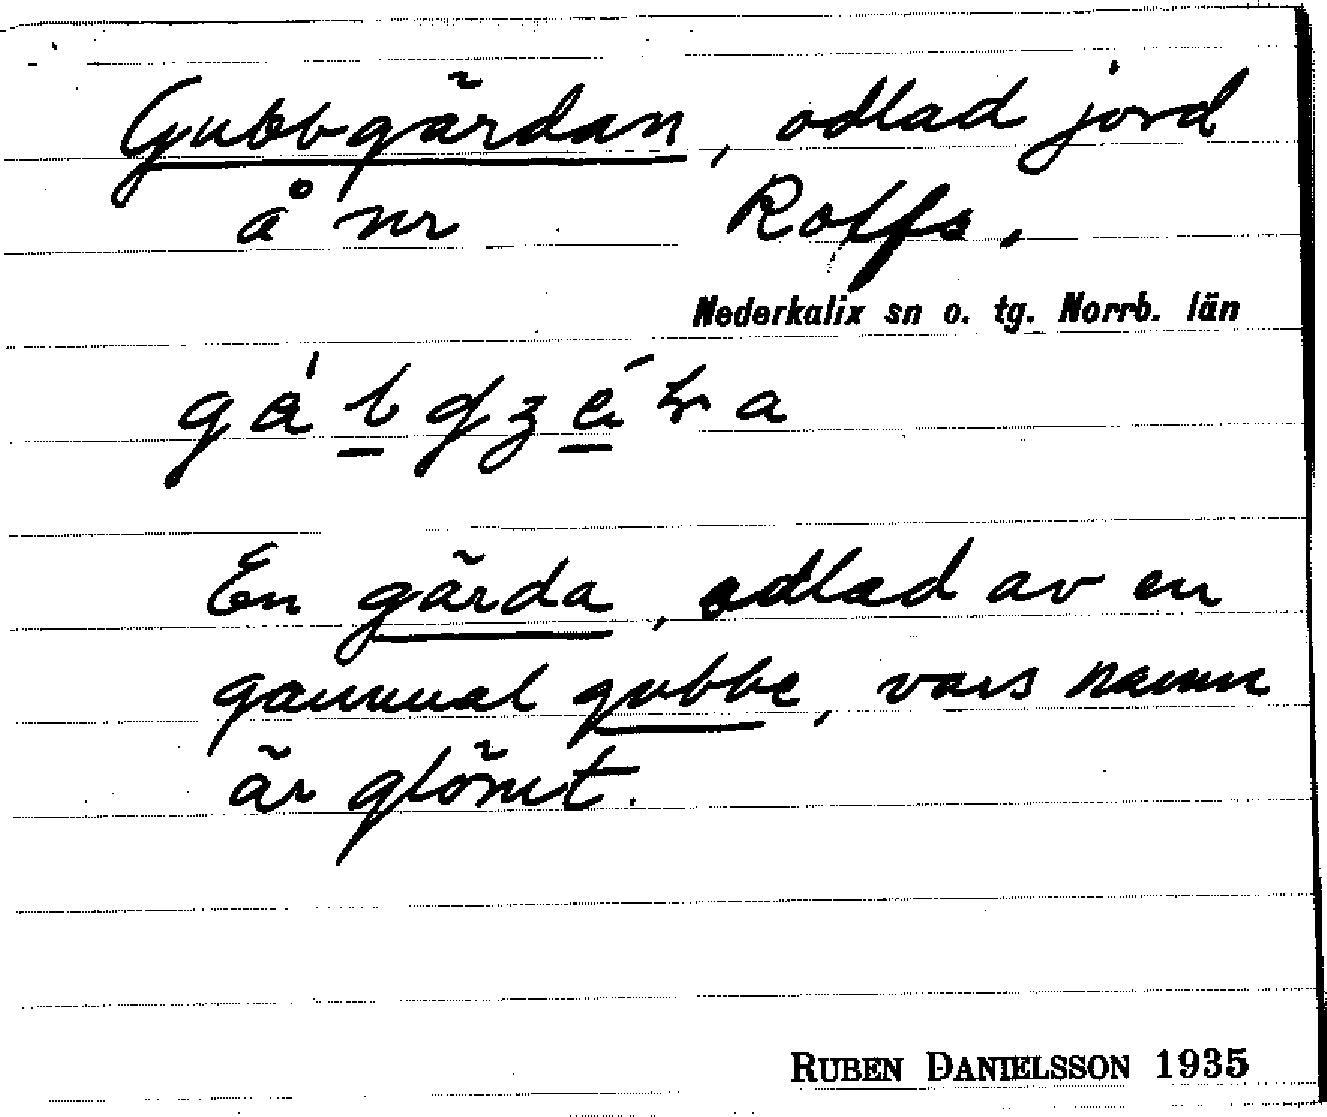 Gubbgärdan, odlad jord
å nr Rolfs.
Nederkalix sn o. tg. Norrb. län
En gärda, odlad av en
gammal gubbe, vars namn
är glömt.
RUBEN DANIELSSON 1935